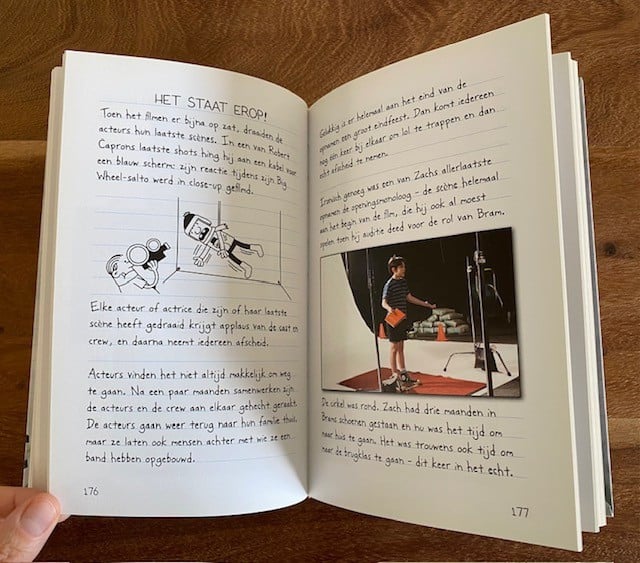 HET STAAT EROP!
Toen het filmen er bijna op zat, draaiden de
acteurs hun laatste scènes. In een van Robert
Caprons laatste shots hing hij aan een kabel voor
een blauw scherm: zijn reactie tijdens zijn Big
Wheel-salto werd in close-up gefilmd.
Elke acteur of actrice die zijn of haar laatste
scène heeft gedraaid krijgt applaus van de cast en
crew, en daarna neemt iedereen afscheid.
Acteurs vinden het niet altijd makkelijk om weg
te gaan. Na een paar maanden samenwerken zijn
de acteurs en de crew aan elkaar gehecht geraakt.
De acteurs gaan weer terug naar hun familie thuis,
maar ze laten ook mensen achter met wie ze een
band hebben opgebouwd.
176
Gelukkig is er helemaal aan het eind van de
opnamen een groot eindfeest. Dan komt iedereen
nog één keer bij elkaar om lol te trappen en dan
echt afscheid te nemen.
Ironisch genoeg was een van Zachs allerlaatste
opnamen de openingsmonoloog – de scène helemaal
aan het begin van de film, die hij ook al moest
spelen toen hij auditie deed voor de rol van Bram.
De cirkel was rond. Zach had drie maanden in
Brams schoenen gestaan en nu was het tijd om
naar huis te gaan. Het was trouwens ook tijd om
naar de brugklas te gaan – dit keer in het echt.
177